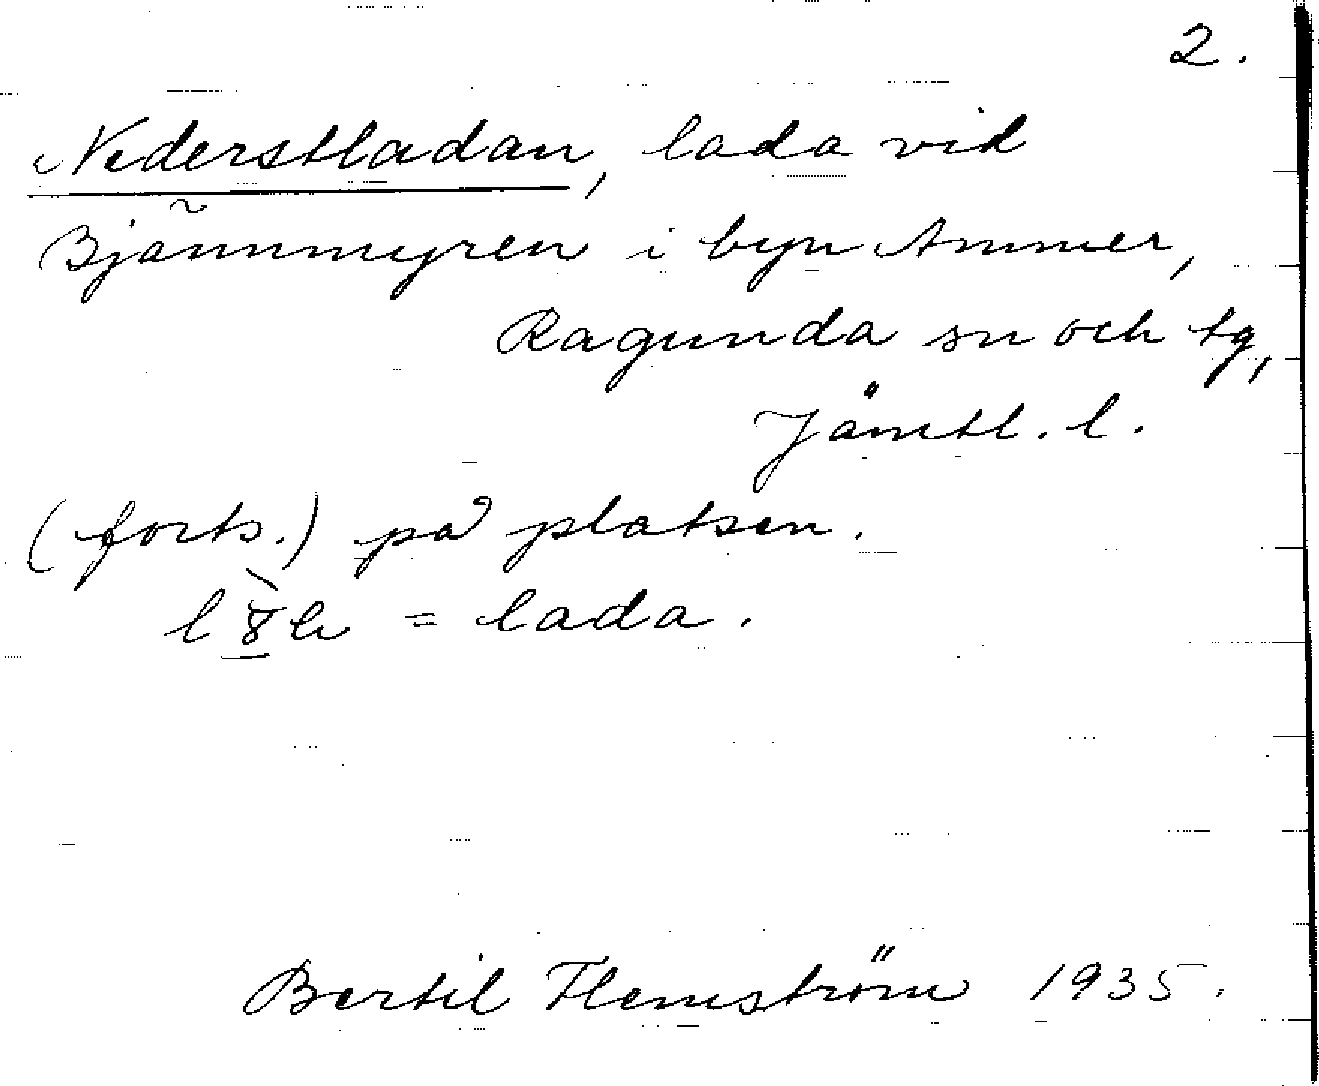 2.
Nederstladan, lada vid
Bjännmyren i byn Ammer,
Ragunda sn och tg,
Jämtl. l.
(forts.) på platsen.
= lada.
Bertil Flemström 1935.